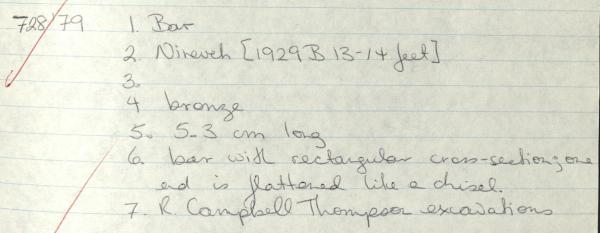 728/79 1. Bar
2. Nineveh [1929 B 13-14 feet]
3.
4 bronze
5. 5.3 cm long
6. bar with rectangular cross-section; one
end is flattened like a chisel.
7. R. Campbell Thompson excavations